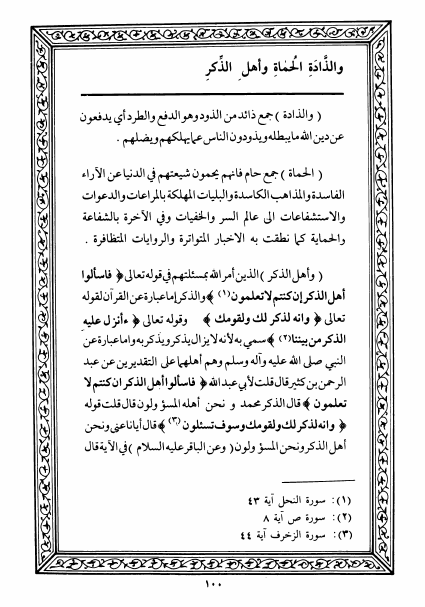 والذَّادَةِ الحُمَاةِ وأهلِ الذِّكرِ
( والذادة ) جمع ذائد من الذود وهو الدفع والطرد أي يدفعون
عن دين الله ما يبطله ويذودون الناس عما يهلكهم ويضلهم .
( الحماة ) جمع حام فانهم يحمون شيعتهم في الدنيا عن الآراء
الفاسدة والمذاهب الكاسدة والبليات المهلكة بالمراعات والدعوات
والاستشفاعات الى عالم السر والخفيات وفي الآخرة بالشفاعة
والحماية كما نطقت به الاخبار المتواترة والروايات المتظافرة .
( وأهل الذكر ) الذين أمر الله بمسئلتهم في قوله تعالى ﴿ فاسألوا
أهل الذكر إن كنتم لا تعلمون (١) ﴾ والذكر إما عبارة عن القرآن لقوله
تعالى ﴿ وانه لذكر لك ولقومك ﴾ وقوله تعالى ﴿ ءأنزل عليه
الذكر من بيننا (٢) ﴾ سمي به لأنه لا يزال يذكر ويذكر به واما عبارة عن
النبي صلى الله عليه وآله وسلم وهم أهلهما على التقديرين عن عبد
الرحمن بن كثير قال قلت لأبي عبد الله ﴿ فاسألوا أهل الذكر ان كنتم لا
تعلمون ﴾ قال الذكر محمد و نحن أهله المسؤولون قال قلت قوله
﴿ وانه لذكر لك ولقومك وسوف تسئلون (٣) ﴾ قال أيانا عنى ونحن
أهل الذكر ونحن المسؤولون ( وعن الباقر عليه السلام ) في الآية قال
(١): سورة النحل آية ٤٣
(٢): سورة ص آية ٨
(٣): سورة الزخرف آية ٤٤
١٠٠